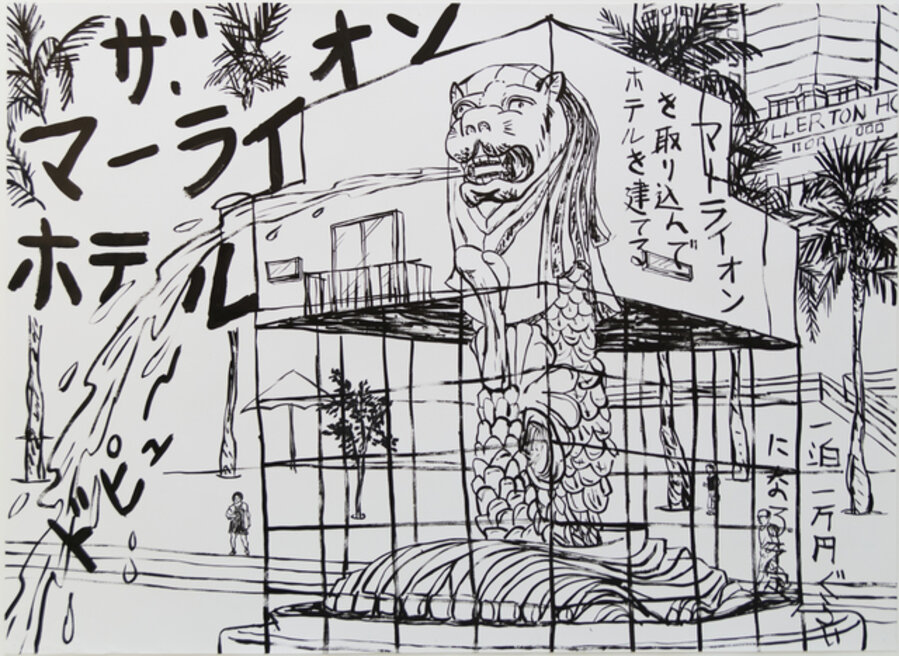 ザ・
マーライオン
ホテル
マーライオン
を取り込んで
ホテルを建てる
ULLERTON HO
一泊一万円ぐらい
になる予定
ドピッ